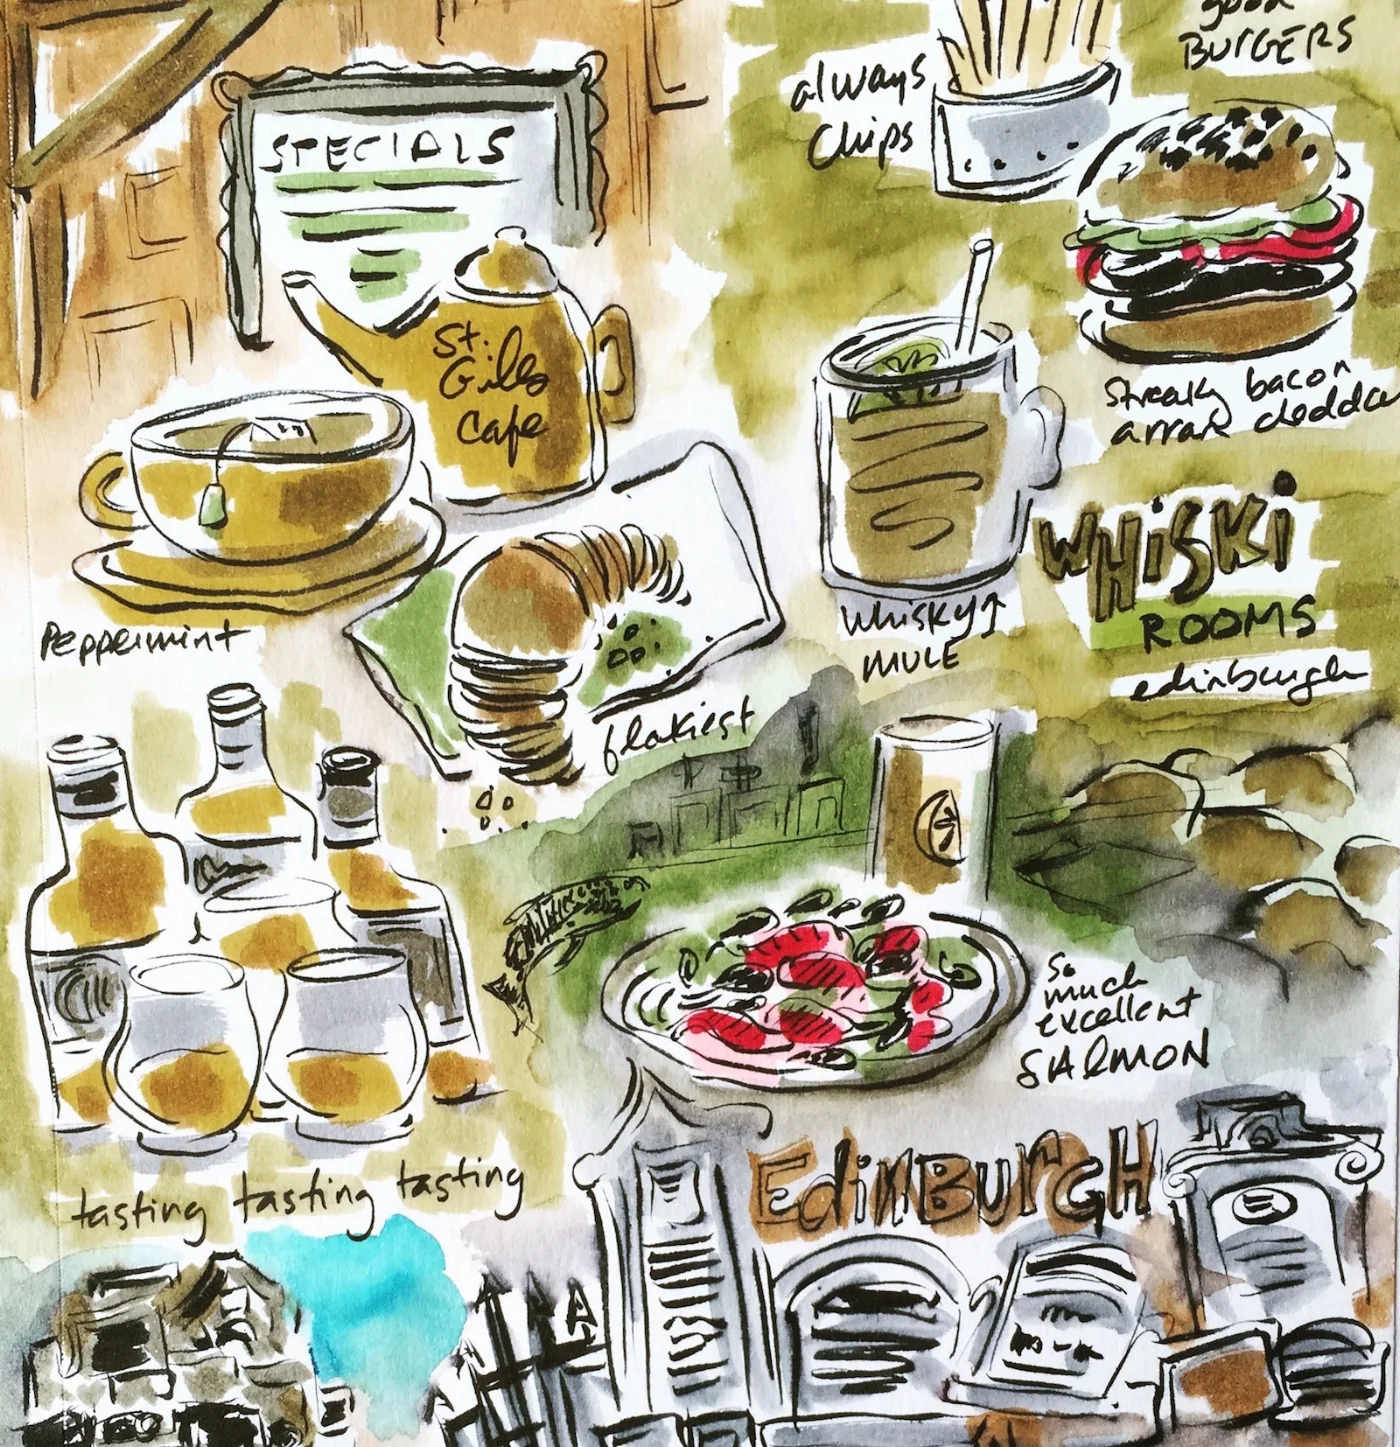 good
BURGERS
always
Chips
SPECIALS
St.
Giles
Cafe
Streaky bacon
arran cheddar
Whiski
ROOMS
edinburgh
Peppermint
Whisky
MULE
flakiest
So
much
excellent
SALMON
tasting tasting tasting
EdinBurgH